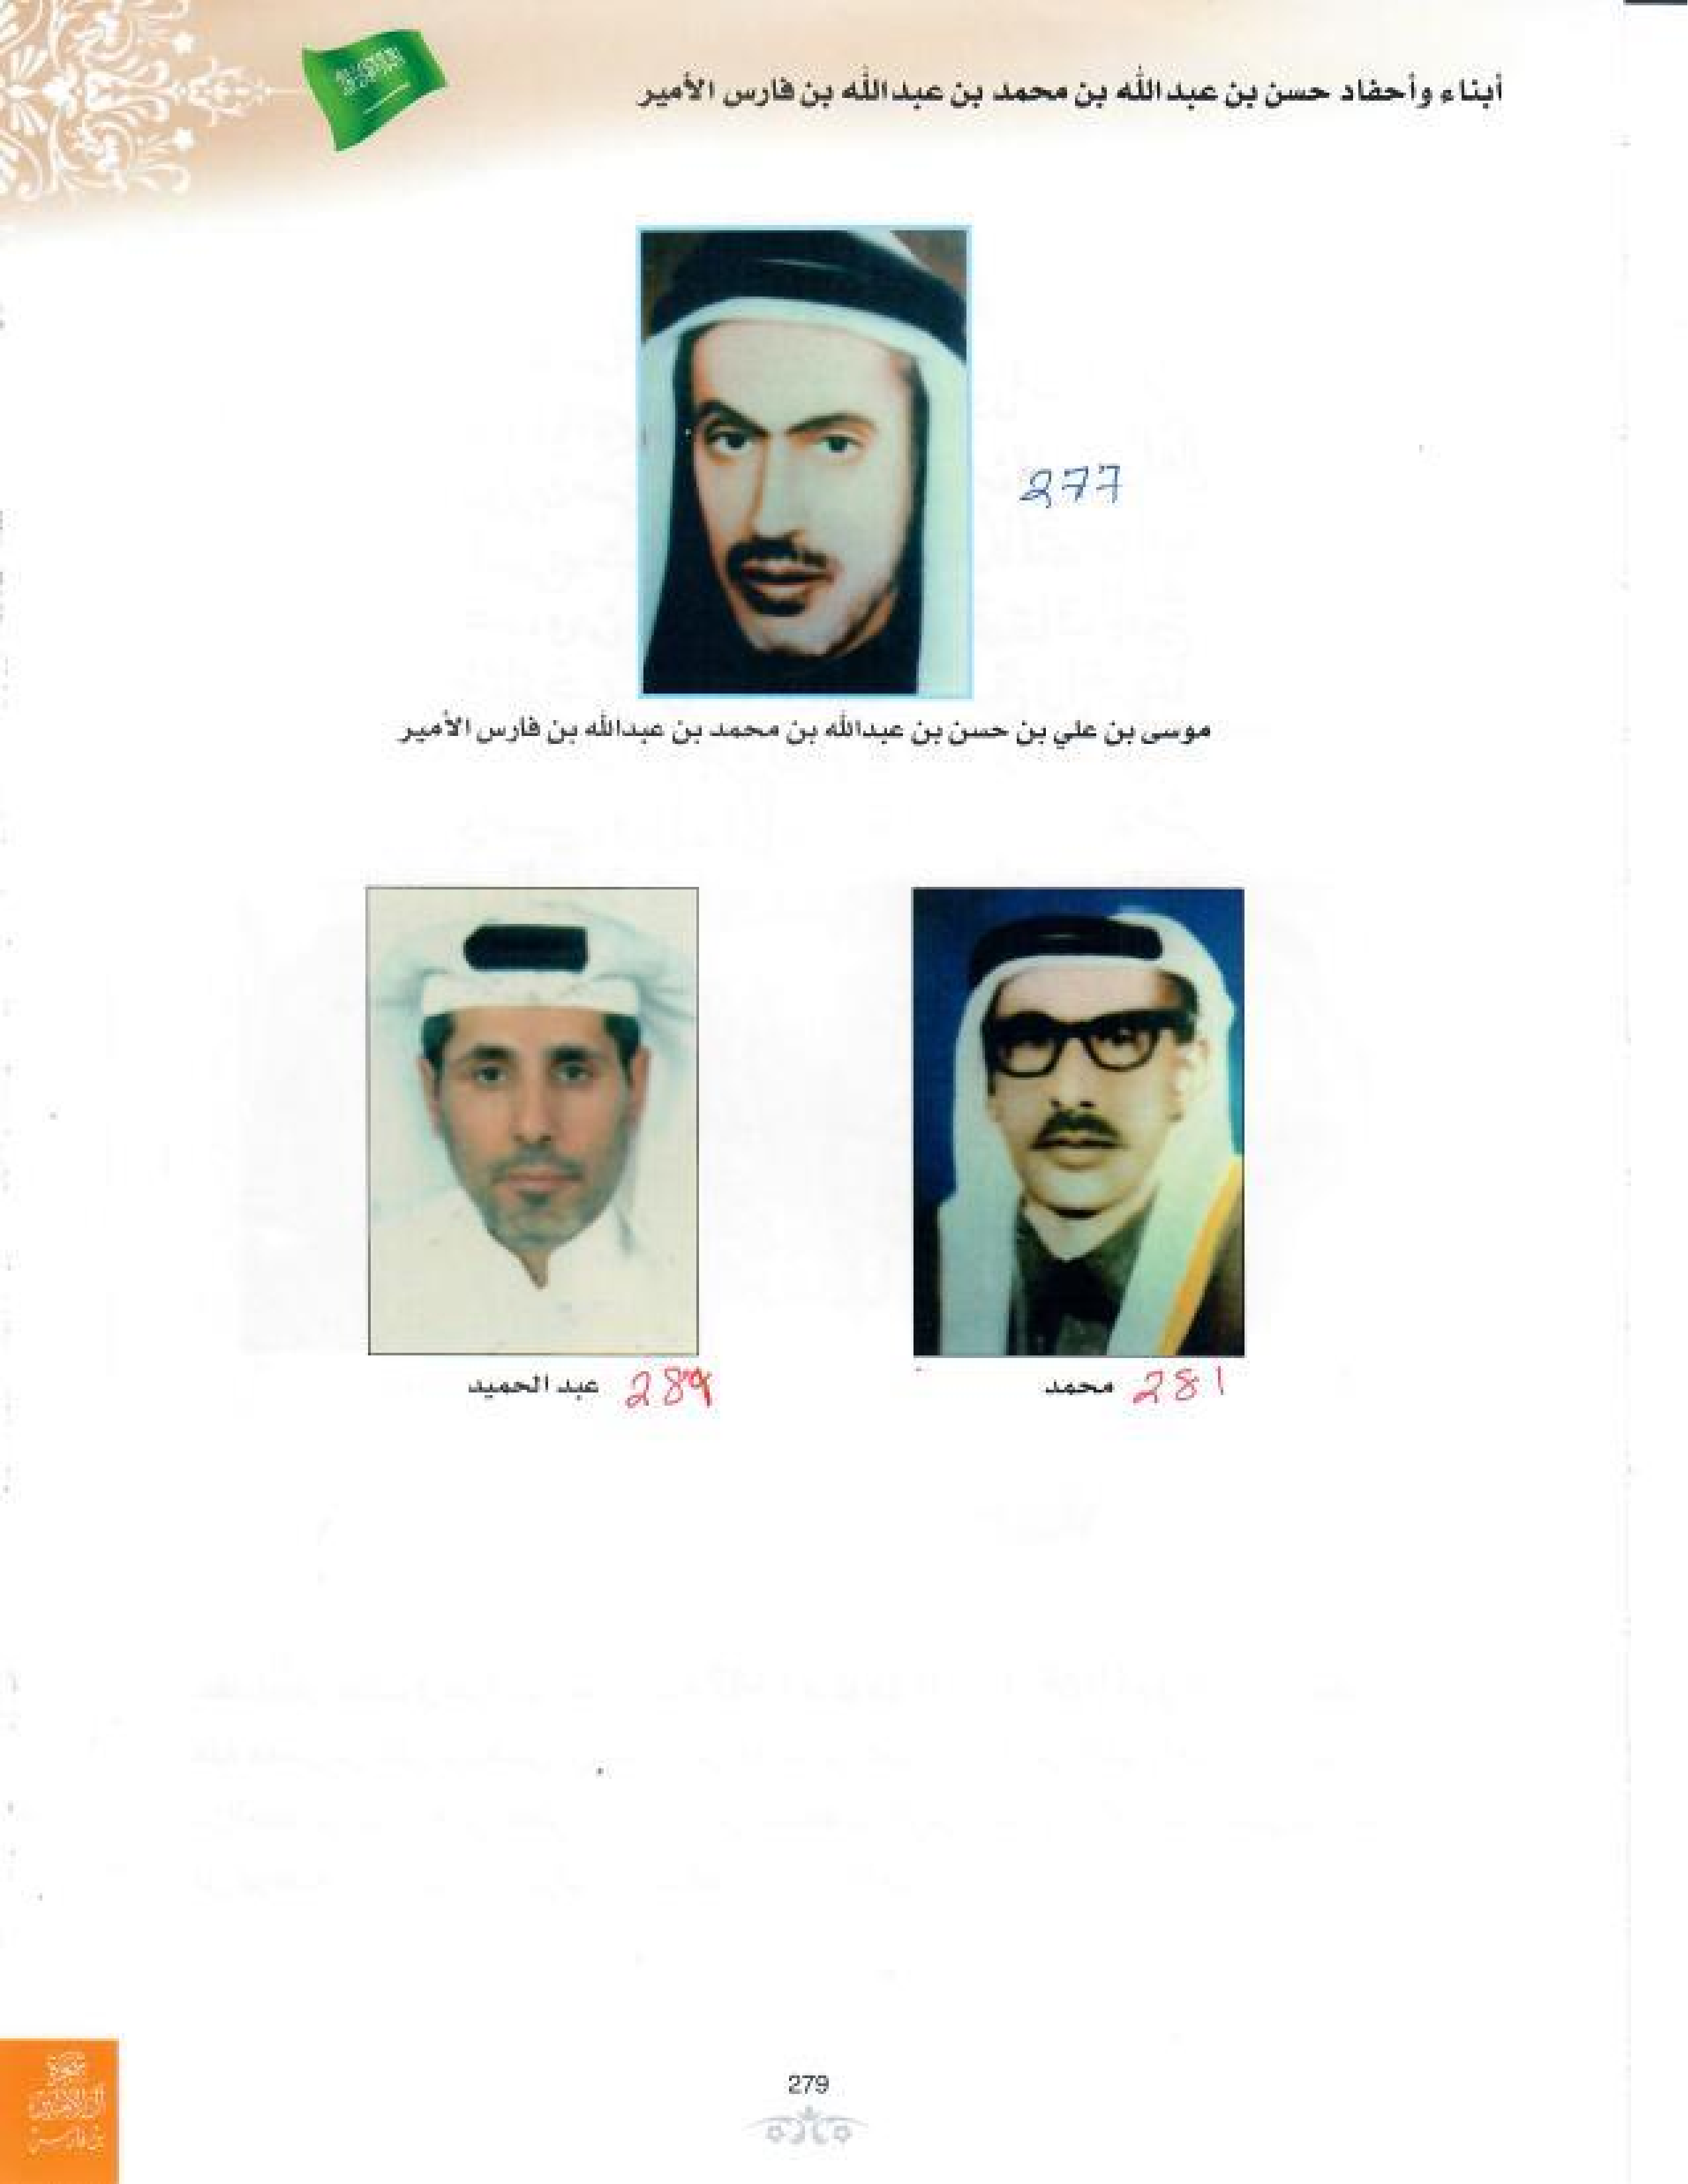 أبناء وأحفاد حسن بن عبدالله بن محمد بن عبدالله بن فارس الأمير
277
موسى بن علي بن حسن بن عبدالله بن محمد بن عبدالله بن فارس الأمير
281 محمد
289 عبد الحميد
279